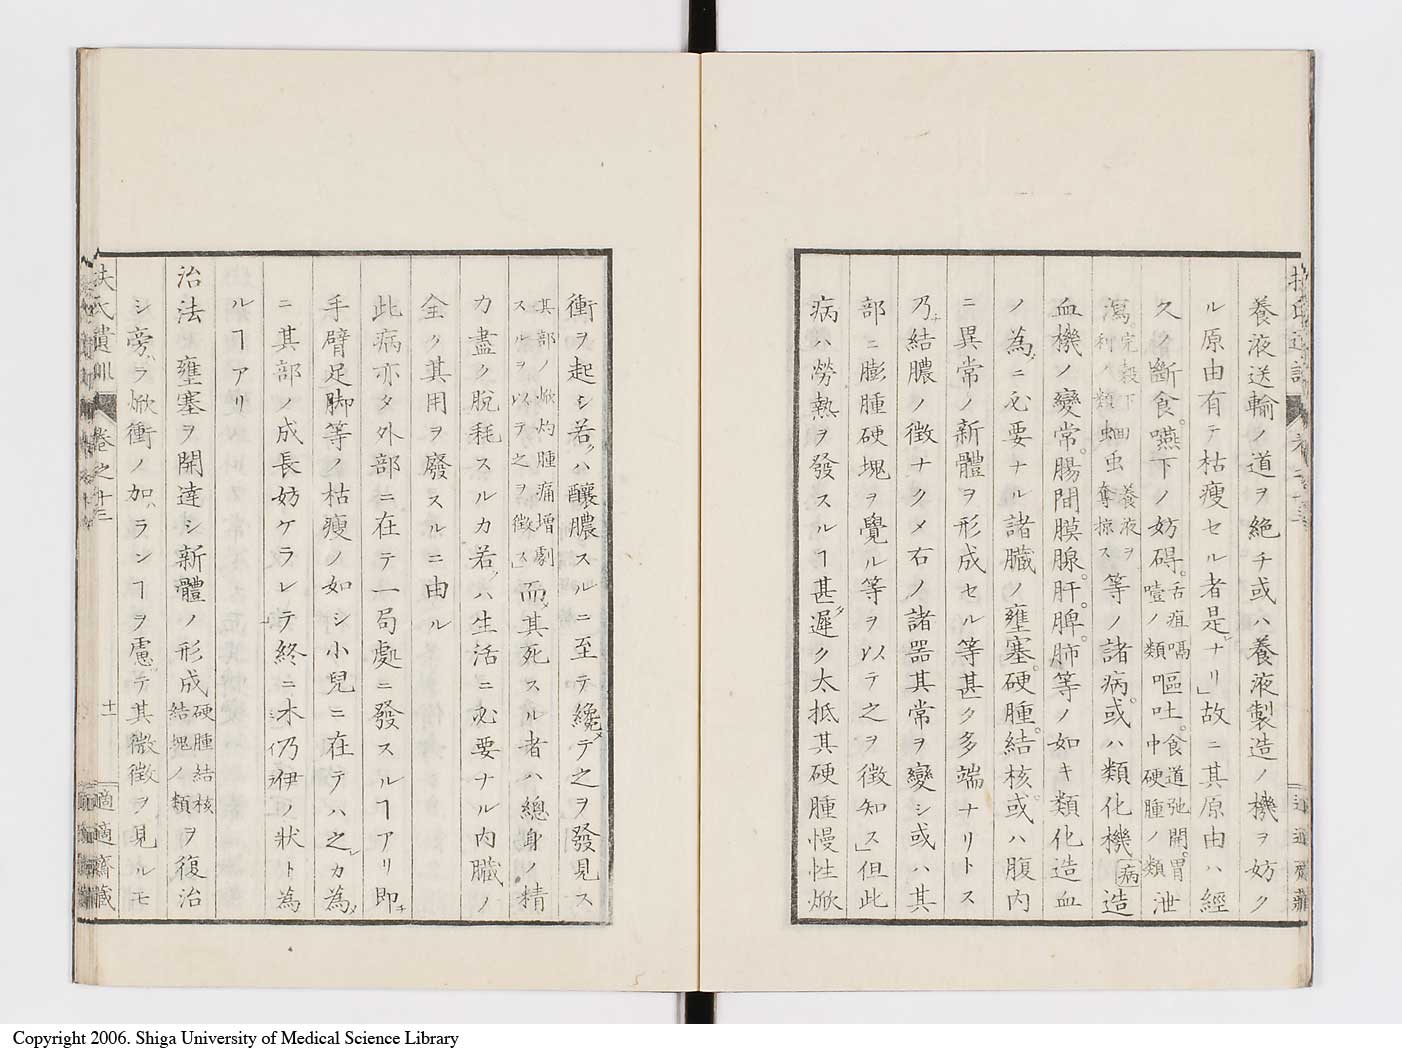 養液送輸ノ道ヲ絶チ或ハ養液製造ノ機ヲ妨ク
ル原由有テ枯瘦セル者是ナリ」故ニ其原由ハ經
久ノ斷食。嚥下ノ妨碍。舌疽嗝噎ノ類嘔吐。食道弛開。胃中硬腫ノ類泄
瀉。完穀下利ノ類蛔虫養液ヲ奪掠ス等ノ諸病。或ハ類化機病造
血機ノ變常。腸間膜腺。肝。脾。肺等ノ如キ類化造血
ノ為ニ必要ナル諸臓ノ壅塞。硬腫。結核。或ハ腹内
ニ異常ノ新體ヲ形成セル等甚ク多端ナリトス
乃チ結膿ノ徴ナクメ右ノ諸器其常ヲ變シ或ハ其
部ニ膨腫硬塊ヲ覺ル等ヲ以テ之ヲ徴知ス」但此
病ハ勞熱ヲ發スルヿ甚タ遲ク太抵其硬腫慢性焮
衝ヲ起シ若クハ釀膿スルニ至テ纔メテ之ヲ發見ス
其部ノ焮灼腫痛增劇スルヲ以テ之ヲ徴ス」而メ其死スル者ハ總身ノ精
力盡ク脱耗スルカ若クハ生活ニ必要ナル内臓ノ
全ク其用ヲ廢スルニ由ル
此病亦タ外部ニ在テ一局處ニ發スルヿアリ即チ
手臂足脚等ノ枯瘦ノ如シ小兒ニ在テハ之レカ為メ
ニ其部ノ成長妨ケラレテ終ニ木乃伊ノ狀ト為
ルヿアリ
治法 壅塞ヲ開達シ新體ノ形成硬腫結核結塊ノ類ヲ復治
シ旁ハラ焮衝ノ加ハランヿヲ慮テ其微徴ヲ見ルモ
扶氏遺訓 卷之十三 十一 適適齋藏